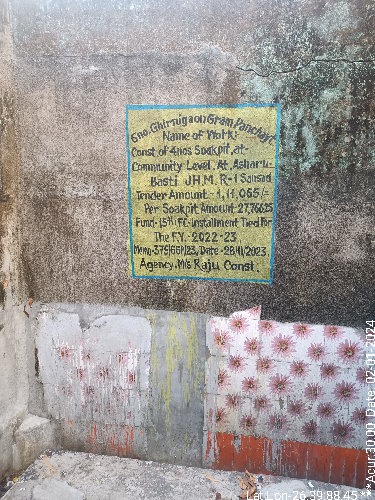 6no. Ghirnigaon Gram Panchayt
Name of Work:
Const of 4nos Soakpit, at-
Community Level. At, Asharu-
Basti JH.M. R-1 Sansad
Tender Amount - 1,11,065/-
Per Soakpit Amount 27,766.25
Fund-15th FC-Installment Tied For
The F.Y. - 2022-23
Memo-375/66P/23, Date-28/11/2023.
Agency. M/s Raju Const.
Lat Lon-26.39,88.45***Acur:30.00 Date: 02-01-2024